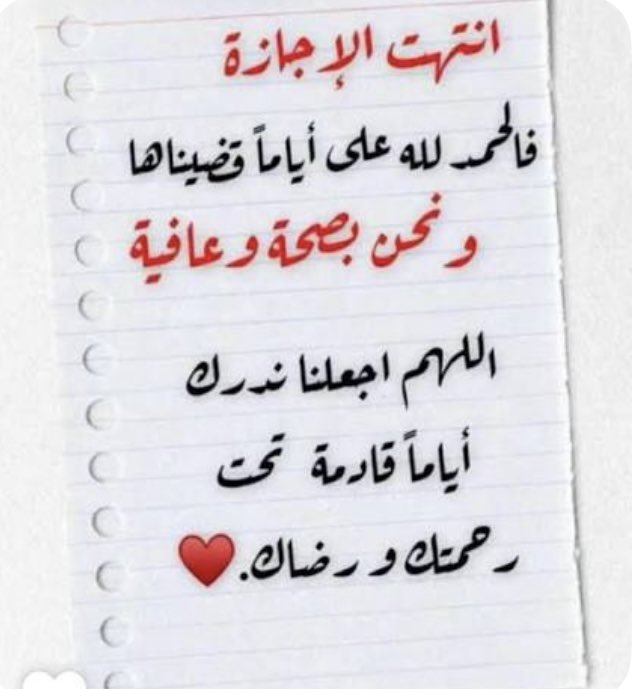 انتهت الإجازة
فالحمد لله على أياماً قضيناها
ونحن بصحة وعافية
اللهم اجعلنا ندرك
أياماً قادمة تحت
رحمتك ورضاك.❤️